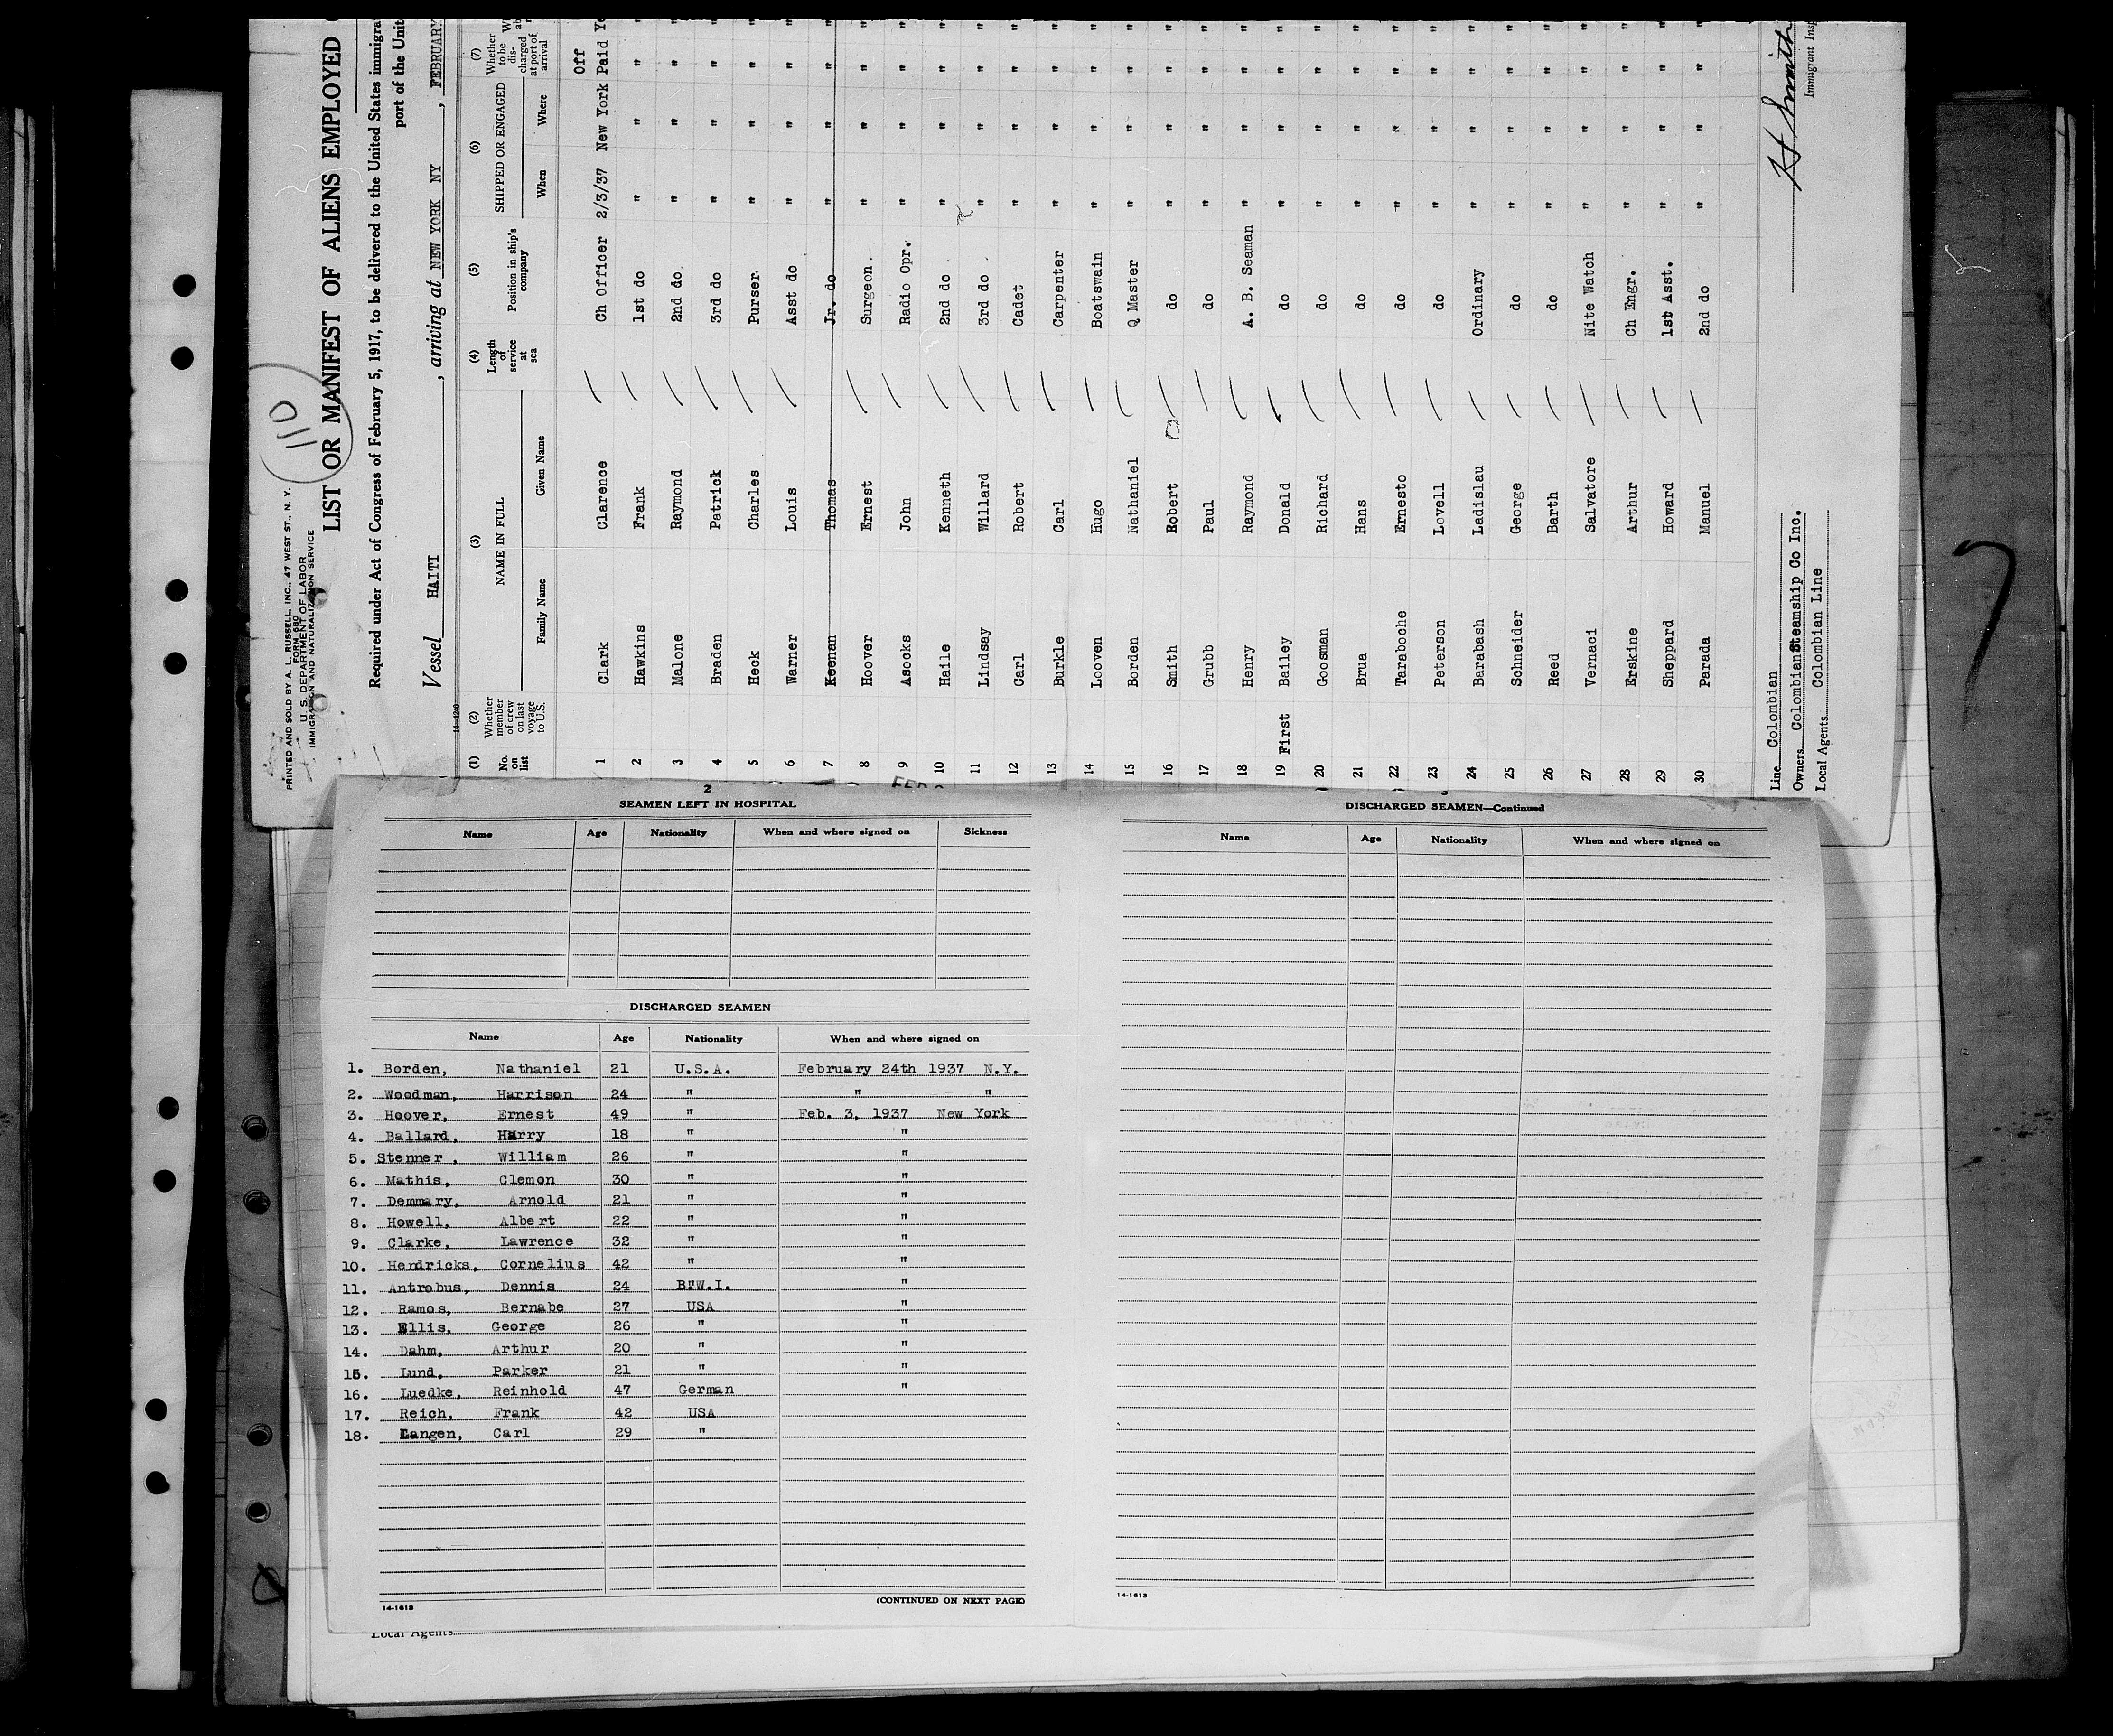 PRINTED AND SOLD BY A. L. RUSSELL, INC., 47 WEST ST., N. Y.
FORM 680
U. S. DEPARTMENT OF LABOR
IMMIGRATION AND NATURALIZATION SERVICE
110
LIST OR MANIFEST OF ALIENS EMPLOYED
Required under Act of Congress of February 5, 1917, to be delivered to the United States immigra
port of the Unit
Vessel HAITI , arriving at NEW YORK NY , FEBRUARY
14-1240
(1) (2) (3) (4) (5) (6) (7)
No. on list Whether member of crew on last voyage to U.S. NAME IN FULL Length of service at sea Position in ship's company SHIPPED OR ENGAGED Whether to be discharged at port of arrival
Family Name Given Name When Where
Off
1 Clark Clarence Ch Officer 2/3/37 New York Paid Ye
2 Hawkins Frank 1st do " " " "
3 Malone Raymond 2nd do " " " "
4 Braden Patrick 3rd do " " " "
5 Heck Charles Purser " " " "
6 Warner Louis Asst do " " " "
7 Keenan Thomas Jr. do " " " "
8 Hoover Ernest Surgeon " " " "
9 Asocks John Radio Opr. " " " "
10 Haile Kenneth 2nd do " " " "
11 Lindsay Willard 3rd do " " " "
12 Carl Robert Cadet " " " "
13 Burkle Carl Carpenter " " " "
14 Looven Hugo Boatswain " " " "
15 Borden Nathaniel Q Master " " " "
16 Smith Robert do " " " "
17 Grubb Paul do " " " "
18 Henry Raymond A. B. Seaman " " " "
19 First Bailey Donald do " " " "
20 Goosman Richard do " " " "
21 Brua Hans do " " " "
22 Taraboche Ernesto do " " " "
23 Peterson Lovell do " " " "
24 Barabash Ladislau Ordinary " " " "
25 Schneider George do " " " "
26 Reed Barth do " " " "
27 Vernaci Salvatore Nite Watch " " " "
28 Erskine Arthur Ch Engr. " " " "
29 Sheppard Howard 1st Asst. " " " "
30 Parada Manuel 2nd do " " " "
Line Colombian
Owners Colombian Steamship Co Inc.
Local Agents Colombian Line
H Smith
Immigrant Insp
2
SEAMEN LEFT IN HOSPITAL
Name Age Nationality When and where signed on Sickness
DISCHARGED SEAMEN
Name Age Nationality When and where signed on
1. Borden, Nathaniel 21 U.S.A. February 24th 1937 N.Y.
2. Woodman, Harrison 24 " " "
3. Hoover, Ernest 49 " Feb. 3, 1937 New York
4. Ballard, Harry 18 " "
5. Stenner, William 26 " "
6. Mathis, Clemon 30 " "
7. Demmary, Arnold 21 " "
8. Howell, Albert 22 " "
9. Clarke, Lawrence 32 " "
10. Hendricks, Cornelius 42 " "
11. Antrobus, Dennis 24 B.W.I. "
12. Ramos, Bernabe 27 USA "
13. Ellis, George 26 " "
14. Dahm, Arthur 20 " "
15. Lund, Parker 21 " "
16. Luedke, Reinhold 47 German "
17. Reich, Frank 42 USA
18. Langen, Carl 29 "
14-1613
(CONTINUED ON NEXT PAGE)
DISCHARGED SEAMEN—Continued
Name Age Nationality When and where signed on
14-1613
Local Agents